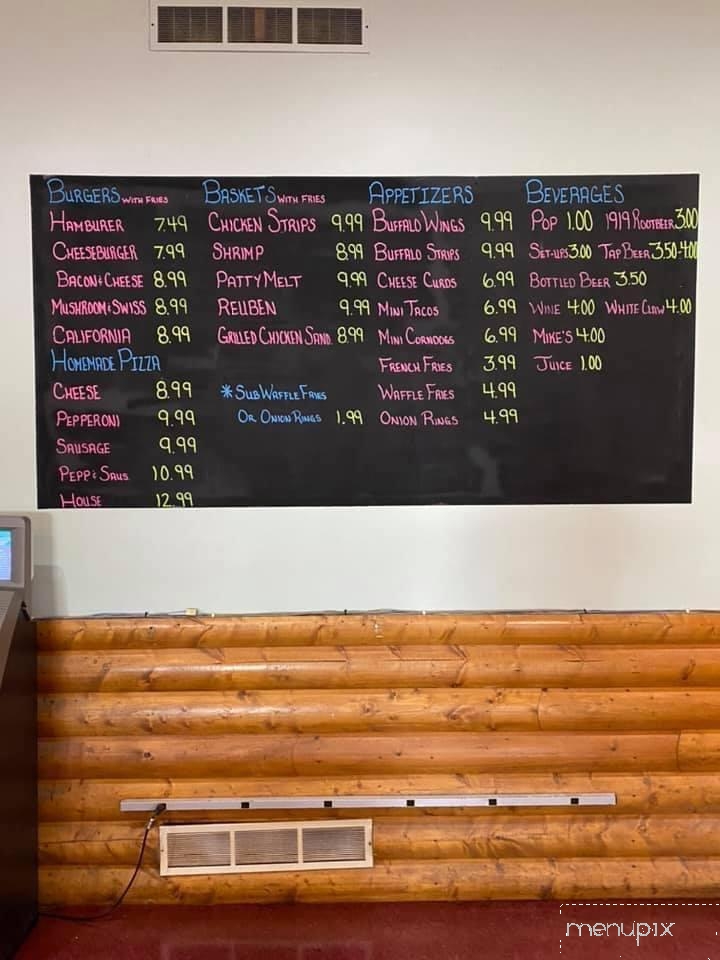 BURGERS WITH FRIES
HAMBURER 7.49
CHEESEBURGER 7.99
BACON & CHEESE 8.99
MUSHROOM & SWISS 8.99
CALIFORNIA 8.99
HOMEMADE PIZZA
CHEESE 8.99
PEPPERONI 9.99
SAUSAGE 9.99
PEPP & SAUS. 10.99
HOUSE 12.99
BASKETS WITH FRIES
CHICKEN STRIPS 9.99
SHRIMP 8.99
PATTY MELT 9.99
REUBEN 9.99
GRILLED CHICKEN SAND. 8.99
* SUB WAFFLE FRIES
OR ONION RINGS 1.99
APPETIZERS
BUFFALO WINGS 9.99
BUFFALO STRIPS 9.99
CHEESE CURDS 6.99
MINI TACOS 6.99
MINI CORNDOGS 6.99
FRENCH FRIES 3.99
WAFFLE FRIES 4.99
ONION RINGS 4.99
BEVERAGES
POP 1.00 1919 ROOTBEER 3.00
SET-UPS 3.00 TAP BEER 3.50-4.00
BOTTLED BEER 3.50
WINE 4.00 WHITE CLAW 4.00
MIKE'S 4.00
JUICE 1.00
menupix